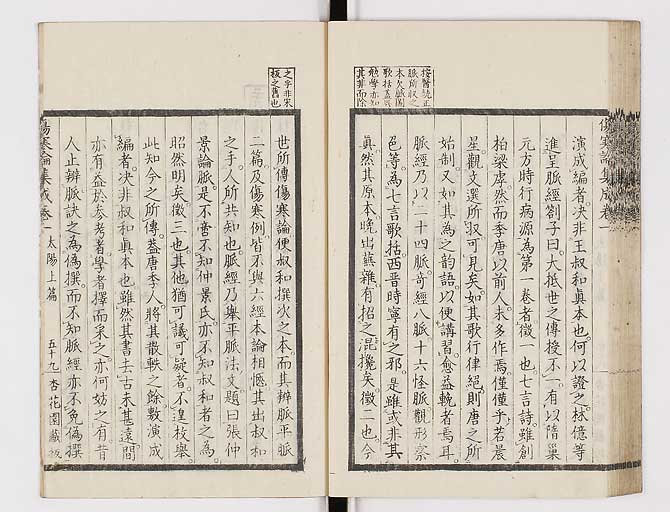 按醫統正
脈所收之
本欠戲圖
歌括蓋
勉學亦知
其非而除
傷寒論集成卷一
演成編者決非王叔和眞本也何以證之林億等
進呈脈經劄子曰大抵世之傳授不一有以隋巢
元方時行病源為第一卷者徵一也七言詩雖創
柏梁序然而季唐以前人未多作焉僅僅乎若晨
星觀文選所收可見矣如其歌行律絕則唐之所
始制又如其為之韵語以便講習愈益輓者焉耳
脈經乃以二十四脈奇經八脈十六怪脈觀形察
色等為七言歌括西晋時寧有之邪是雖或非其
眞然其原本晚出蕪雜有招之混攙矣徵二也今
之字非宋
板之舊也
世所傳傷寒論便叔和撰次之本而其辨脈平脈
二篇及傷寒例皆不與六經本論相應其出叔和
之手人所共知也脈經乃舉平脈法文題曰張仲
景論脈是不啻不知仲景氏亦不知叔和者之為
昭然明矣徵三也其他猶可議可疑者不遑枚舉
此知今之所傳蓋唐季人將其散軼之餘敷演成
編者決非叔和眞本也雖然其書去古未甚遠間
亦有益於参考者學者擇而采之亦何妨之有昔
人止辨脈訣之為偽撰而不知脈經亦不免偽撰
傷寒論集成卷一 太陽上篇 五十九 杏花園藏板